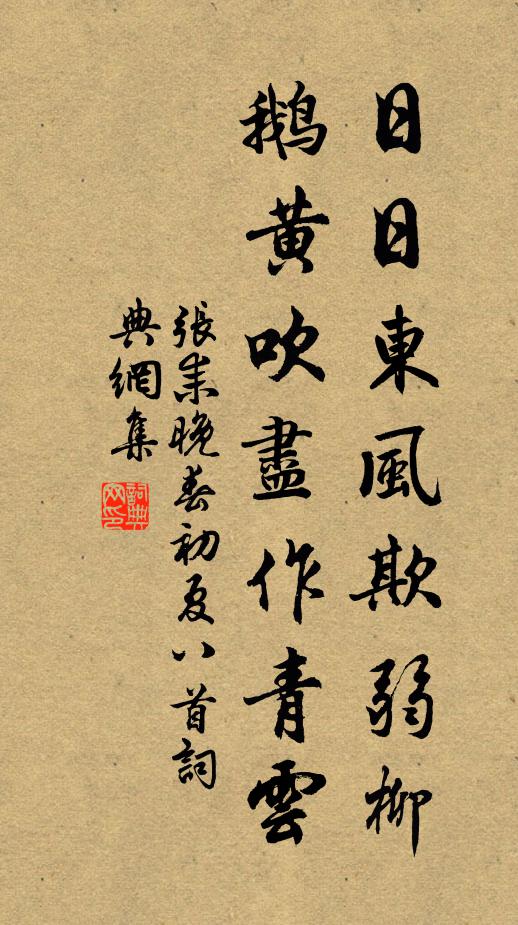 日日東風欺弱柳
鵝黄吹盡作青雲
張耒晚春初夏八首詞
典網集
詞典
网印